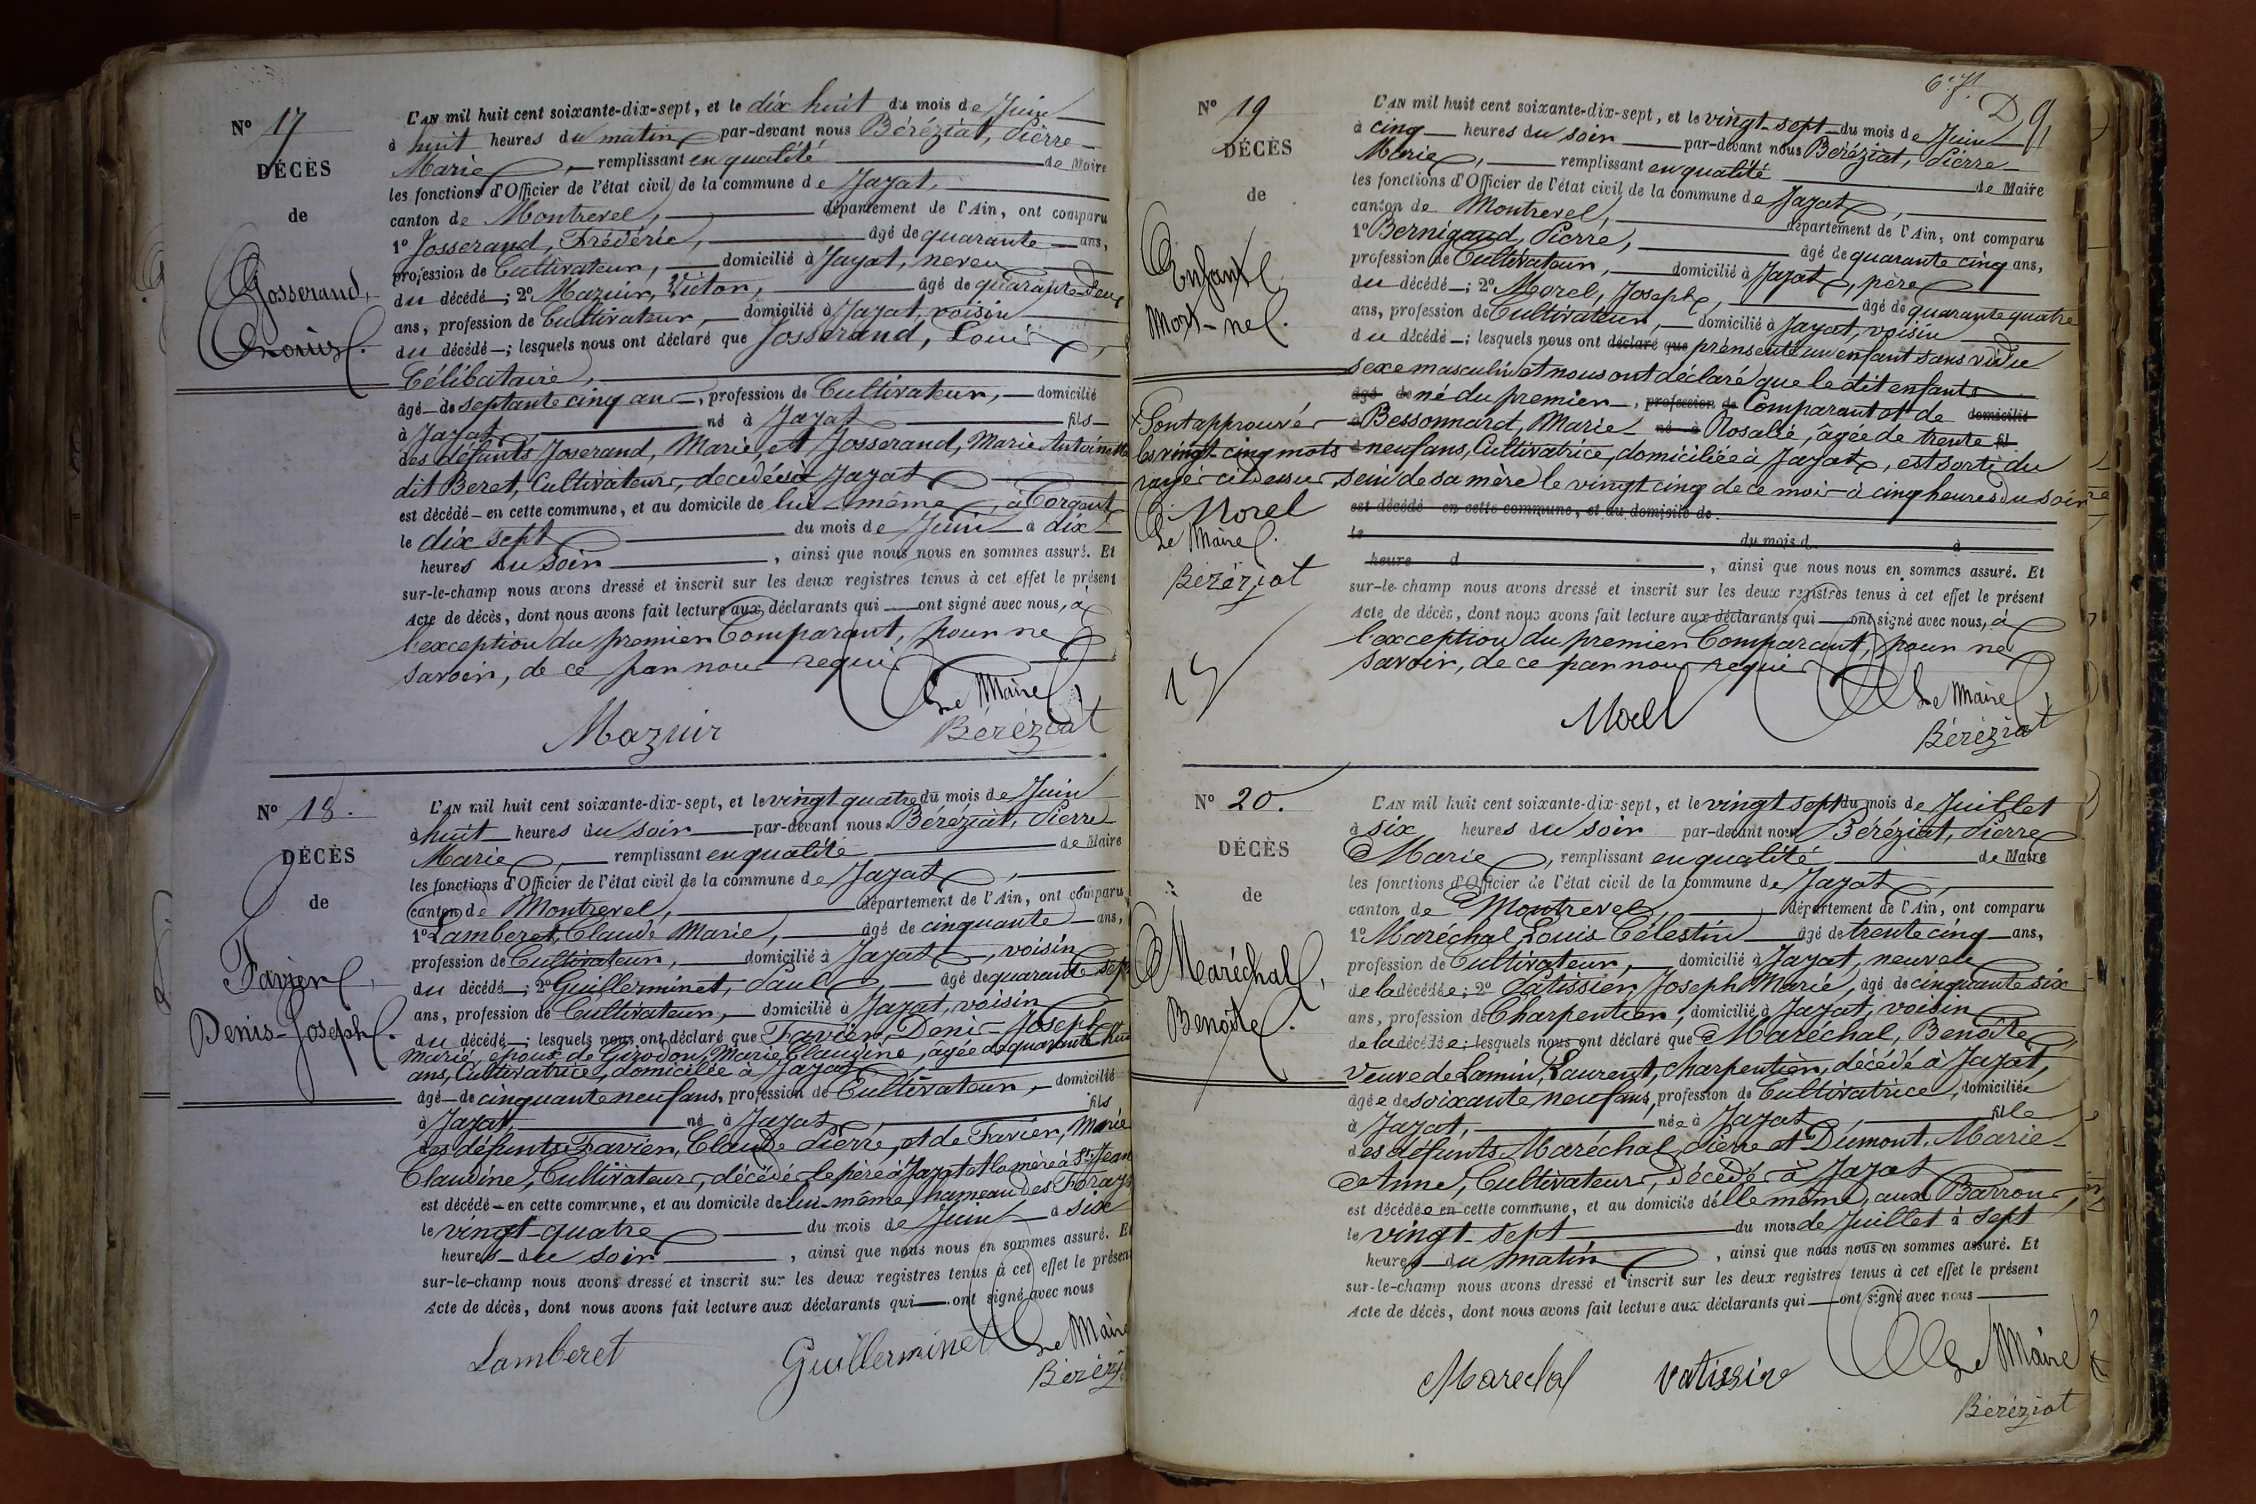 Nº 17
DÉCÈS
de
Josserand,
Louis.
L'AN mil huit cent soixante-dix-sept, et le dix huit du mois de Juin
à huit heures du matin, par-devant nous Béréziat, Pierre
Marie, remplissant en qualité de Maire
les fonctions d'Officier de l'état civil de la commune de Jayat,
canton de Montrevel, département de l'Ain, ont comparu
1º Josserand, Frédéric, âgé de quarante ans,
profession de Cultivateur, domicilié à Jayat, neveu
du décédé ; 2º Mazuir, Victor, âgé de quarante deux
ans, profession de Cultivateur, domicilié à Jayat, voisin
du décédé ; lesquels nous ont déclaré que Josserand, Louis,
Célibataire,
âgé de septante cinq ans, profession de Cultivateur, domicilié
à Jayat né à Jayat fils
des défunts Joserand, Marie, et Josserand, Marie Antoinette
dit Beret, Cultivateurs, décédés à Jayat
est décédé en cette commune, et au domicile de lui-même, à Corgent
le dix sept du mois de Juin à dix
heures du soir, ainsi que nous nous en sommes assuré. Et
sur-le-champ nous avons dressé et inscrit sur les deux registres tenus à cet effet le présent
Acte de décès, dont nous avons fait lecture aux déclarants qui ont signé avec nous, à
l'exception du premier Comparant, pour ne
savoir, de ce par nous requis
Le Maire
Mazuir Béréziat
Nº 18.
DÉCÈS
de
Favier,
Denis-Joseph.
L'AN mil huit cent soixante-dix-sept, et le vingt quatre du mois de Juin
à huit heures du soir par-devant nous Béréziat, Pierre
Marie, remplissant en qualité de Maire
les fonctions d'Officier de l'état civil de la commune de Jayat,
canton de Montrevel, département de l'Ain, ont comparu
1º Lamberet, Claude Marie, âgé de cinquante ans,
profession de Cultivateur, domicilié à Jayat, voisin
du décédé ; 2º Guillerminet, Paul, âgé de quarante sept
ans, profession de Cultivateur, domicilié à Jayat, voisin
du décédé ; lesquels nous ont déclaré que Favier, Denis-Joseph
Marie, époux de Girodon, Marie Claudine, âgée de quarante huit
ans, Cultivatrice, domicilée à Jayat
âgé de cinquante neuf ans, profession de Cultivateur, domicilié
à Jayat, né à Jayat fils
des défunts Favier, Claude Pierre, et de Favier, Marie
Claudine, Cultivateurs, décédés le père à Jayat et la mère à St Jean
est décédé en cette commune, et au domicile de lui-même, hameau des
le vingt-quatre du mois de Juin à six
heures du soir, ainsi que nous nous en sommes assuré. Et
sur-le-champ nous avons dressé et inscrit sur les deux registres tenus à cet effet le présent
Acte de décès, dont nous avons fait lecture aux déclarants qui ont signé avec nous
Lamberet Guillerminet Le Maire
Nº 19
DÉCÈS
de
Enfant
Mort-né.
Sont approuvés
les vingt cinq mots
rayés ci-dessus
Morel
Le Maire
Béréziat
L'AN mil huit cent soixante-dix-sept, et le vingt-sept du mois de Juin
à cinq heures du soir par-devant nous Béréziat, Pierre
Marie, remplissant en qualité de Maire
les fonctions d'Officier de l'état civil de la commune de Jayat,
canton de Montrevel, département de l'Ain, ont comparu
1º Bernigaud, Pierre, âgé de quarante cinq ans,
profession de Cultivateur, domicilié à Jayat, père
du décédé ; 2º Morel, Joseph, âgé de quarante quatre
ans, profession de Cultivateur, domicilié à Jayat, voisin
du décédé ; lesquels nous ont déclaré que prénsenté un enfant sans vie du
sexe masculin et nous ont déclaré que le dit enfants
âgé de né du premier, profession de Comparant et de domicilié
à Bessonnard, Marie né à Rosalie, âgée de trente fil
neuf ans, Cultivatrice, domiciliée à Jayat, est sorti du
sein de sa mère le vingt cinq de ce mois à cinq heures du soir
est décédé en cette commune, et au domicile de
le du mois d à
heure d , ainsi que nous nous en sommes assuré. Et
sur-le-champ nous avons dressé et inscrit sur les deux registres tenus à cet effet le présent
Acte de décès, dont nous avons fait lecture aux déclarants qui ont signé avec nous, à
l'exception du premier Comparant, pour ne
savoir, de ce par nous requis
Le Maire
Morel Béréziat
Nº 20.
DÉCÈS
de
Maréchal,
Benoîte.
L'AN mil huit cent soixante-dix-sept, et le vingt sept du mois de Juillet
à six heures du soir par-devant nous Béréziat, Pierre
Marie, remplissant en qualité de Maire
les fonctions d'Officier de l'état civil de la commune de Jayat,
canton de Montrevel, département de l'Ain, ont comparu
1º Maréchal Louis Célestin âgé de trente cinq ans,
profession de Cultivateur, domicilié à Jayat, neuveu
de la décédée ; 2º Patissier, Joseph Marie, âgé de cinquante six
ans, profession de Charpentier, domicilié à Jayat, voisin
de la décédée ; lesquels nous ont déclaré que Maréchal, Benoîte
Veuve de Lamin, Laurent, Charpentier, décédé à Jayat,
âgée de soixante neuf ans, profession de Cultivatrice, domiciliée
à Jayat, née à Jayat fille
des défunts Maréchal Pierre et Dumont, Marie
Anne, Cultivateurs, décédés à Jayat
est décédée en cette commune, et au domicile d'elle même, aux Barrons,
le vingt-sept du mois de Juillet à sept
heures du matin, ainsi que nous nous en sommes assuré. Et
sur-le-champ nous avons dressé et inscrit sur les deux registres tenus à cet effet le présent
Acte de décès, dont nous avons fait lecture aux déclarants qui ont signé avec nous
Marechal Patissier Le Maire
Béréziat